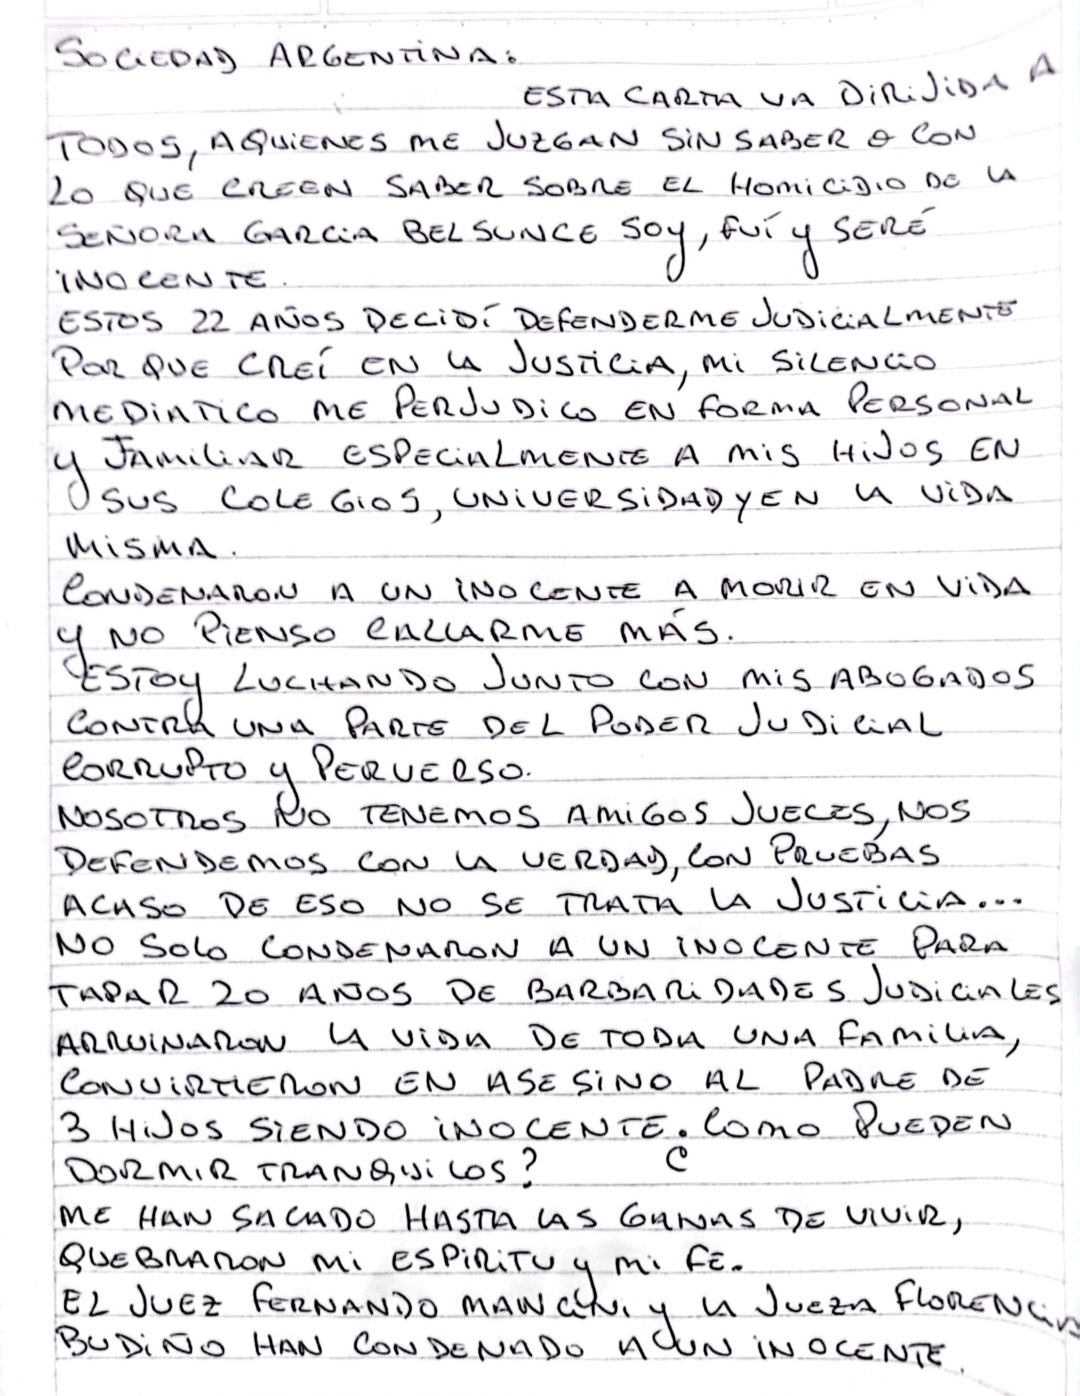 SOCIEDAD ARGENTINA:
ESTA CARTA VA DIRIJIDA A
TODOS, A QUIENES ME JUZGAN SIN SABER O CON
LO QUE CREEN SABER SOBRE EL HOMICIDIO DE LA
SEÑORA GARCIA BELSUNCE SOY, FUÍ Y SERÉ
INOCENTE.
ESTOS 22 AÑOS DECIDÍ DEFENDERME JUDICIALMENTE
POR QUE CREÍ EN LA JUSTICIA, MI SILENCIO
MEDIATICO ME PERJUDICO EN FORMA PERSONAL
Y FAMILIAR ESPECIALMENTE A MIS HIJOS EN
SUS COLEGIOS, UNIVERSIDAD Y EN LA VIDA
MISMA.
CONDENARON A UN INOCENTE A MORIR EN VIDA
Y NO PIENSO CALLARME MÁS.
ESTOY LUCHANDO JUNTO CON MIS ABOGADOS
CONTRA UNA PARTE DEL PODER JUDICIAL
CORRUPTO Y PERVERSO.
NOSOTROS NO TENEMOS AMIGOS JUECES, NOS
DEFENDEMOS CON LA VERDAD, CON PRUEBAS
ACASO DE ESO NO SE TRATA LA JUSTICIA...
NO SOLO CONDENARON A UN INOCENTE PARA
TAPAR 20 AÑOS DE BARBARIDADES JUDICIALES
ARRUINARON LA VIDA DE TODA UNA FAMILIA,
CONVIRTIERON EN ASESINO AL PADRE DE
3 HIJOS SIENDO INOCENTE. ¿COMO PUEDEN
DORMIR TRANQUILOS?
ME HAN SACADO HASTA LAS GANAS DE VIVIR,
QUEBRARON MI ESPIRITU Y MI FE.
EL JUEZ FERNANDO MANCINI Y LA JUEZA FLORENCIA
BUDIÑO HAN CONDENADO A UN INOCENTE.